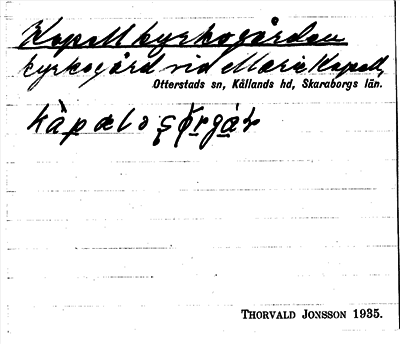 Kapellkyrkogården
kyrkogård vid Marie Kapell,
Otterstads sn, Kållands hd, Skaraborgs län.
THORVALD JONSSON 1935.